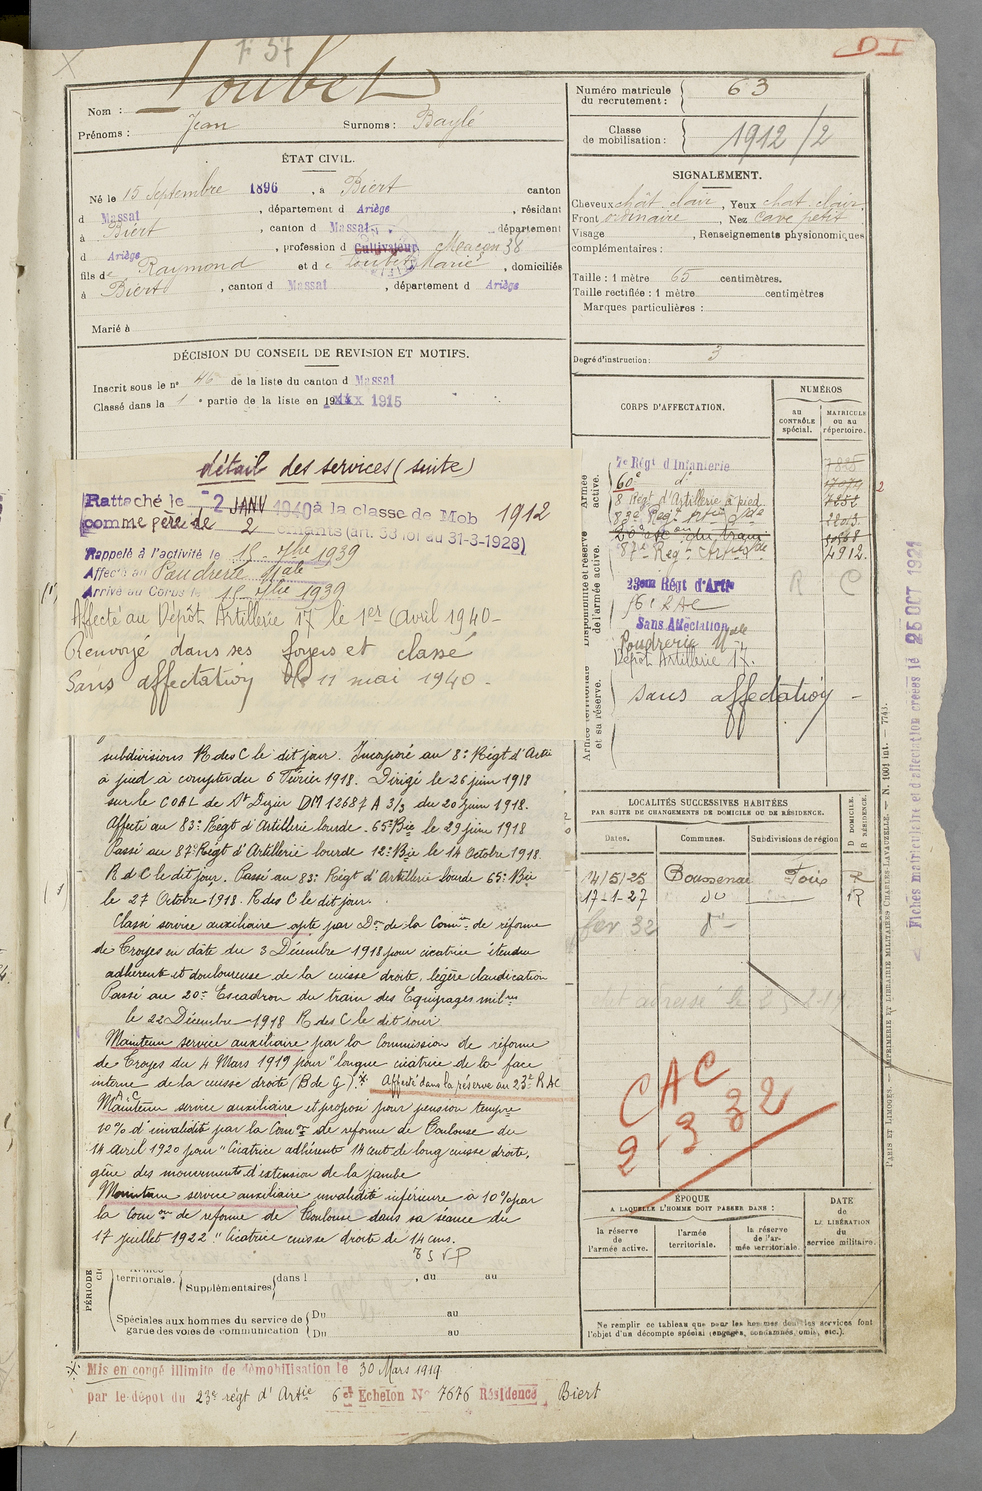 F 57
D I
Nom : Loubet
Prénoms : Jean Surnoms : Baylé
ÉTAT CIVIL.
Né le 15 Septembre 1896, à Biert canton
d Massat, département d Ariège, résidant
à Biert, canton d Massat, département
d Ariège, profession d Cultivateur Maçon 38
fils de Raymond et de Loubet Marie, domiciliés
à Biert, canton d Massat, département d Ariège
Marié à
DÉCISION DU CONSEIL DE REVISION ET MOTIFS.
Inscrit sous le n° 46 de la liste du canton d Massat
Classé dans la 1e partie de la liste en 1915
Numéro matricule du recrutement : 63
Classe de mobilisation : 1912/2
SIGNALEMENT.
Cheveux chât. clair, Yeux chat. clair,
Front ordinaire, Nez cave petit
Visage , Renseignements physionomiques
complémentaires :
Taille : 1 mètre 65 centimètres.
Taille rectifiée : 1 mètre centimètres
Marques particulières :
Degré d'instruction : 3
CORPS D'AFFECTATION.
NUMÉROS
au CONTRÔLE spécial.
MATRICULE ou au répertoire.
Armée active.
Disponibilité et réserve de l'armée active.
Armée territoriale et sa réserve.
7e Régt d'Infanterie
60e d°
8 Régt d'Artillerie à pied
83e Regt Artie Lde
20e esc on du train
87e Regt Artie Lde 4912.
R C
23eme Régt d'Artie
16e RAC
Sans Affectation
Poudrerie Nale
Dépôt Artillerie 17.
sans affectation -
détail des services (suite)
Rattaché le -2 JANV 1940 à la classe de Mob 1912
comme père de 2 enfants (art. 58 loi du 31-3-1928)
Rappelé à l'activité le 15 7bre 1939
Affecté au Poudrerie Nale
Arrivé au Corps le 15 7bre 1939
Affecté au Dépôt Artillerie 17 le 1er Avril 1940-
Renvoyé dans ses foyers et classé
Sans affectation le 11 mai 1940.-
subdivisions R des C le dit jour. Incorporé au 8e Régt d'Artie
à pied à compter du 6 Février 1918. Dirigé le 26 juin 1918
sur le COAL de St Dizier DM 12687 A 3/3 du 20 Juin 1918.
Affecté au 83e Régt d'Artillerie lourde. 65e Bie le 29 juin 1918
Passé au 87e Régt d'Artillerie lourde 12e Bie le 14 Octobre 1918.
R d C le dit jour. Passé au 83e Régt d'Artillerie lourde 65e Bie
le 27 Octobre 1918. R des C le dit jour.
Classé service auxiliaire apte par Don de la Comon de réforme
de Troyes en date du 3 Décembre 1918 pour cicatrice étendue
adhérente et douloureuse de la cuisse droite, légère claudication
Passé au 20e Escadron du train des Equipages mil res
le 22 Décembre 1918 R des C le dit jour
Maintenu service auxiliaire par la Commission de réforme
de Troyes du 4 Mars 1919 pour "longue cicatrice de la face
interne de la cuisse droite (B de G). Affecté dans la réserve au 23e RAC
Maintenu service auxiliaire et proposé pour pension tempre
10% d'invalidité par la Comon de réforme de Toulouse du
14 avril 1920 pour "Cicatrice adhérente 14 cent de long cuisse droite,
gêne des mouvements d'extension de la jambe
Maintenu service auxiliaire invalidité inférieure à 10% par
la Com on de réforme de Toulouse dans sa séance du
17 juillet 1922 "Cicatrice cuisse droite de 14 cms.
LOCALITÉS SUCCESSIVES HABITÉES
PAR SUITE DE CHANGEMENTS DE DOMICILE OU DE RÉSIDENCE.
Dates. Communes. Subdivisions de région
D DOMICILE. R RÉSIDENCE.
14/5/25 Boussenac Foix R
17-1-27 do R
fev 32 d°
CAC
2.3 32
ÉPOQUE
A LAQUELLE L'HOMME DOIT PASSER DANS :
la réserve de l'armée active.
l'armée territoriale.
la réserve de l'armée territoriale.
DATE de LA LIBÉRATION du service militaire.
Ne remplir ce tableau que pour les hommes dont les services font
l'objet d'un décompte spécial (engagés, condamnés, omis, etc.).
PÉRIODE
territoriale. Supplémentaires dans l , du au
Spéciales aux hommes du service de garde des voies de communication
Du au
Du au
Mis en congé illimité de démobilisation le 30 Mars 1919
par le dépôt du 23e régt d'Artie 6et Echelon N° 7676 Résidence Biert
Fiches matriculaire et d'affectation créées le 25 OCT 1921
PARIS ET LIMOGES. — IMPRIMERIE ET LIBRAIRIE MILITAIRES CHARLES-LAVAUZELLE. — N. 1001 int. — 7743.